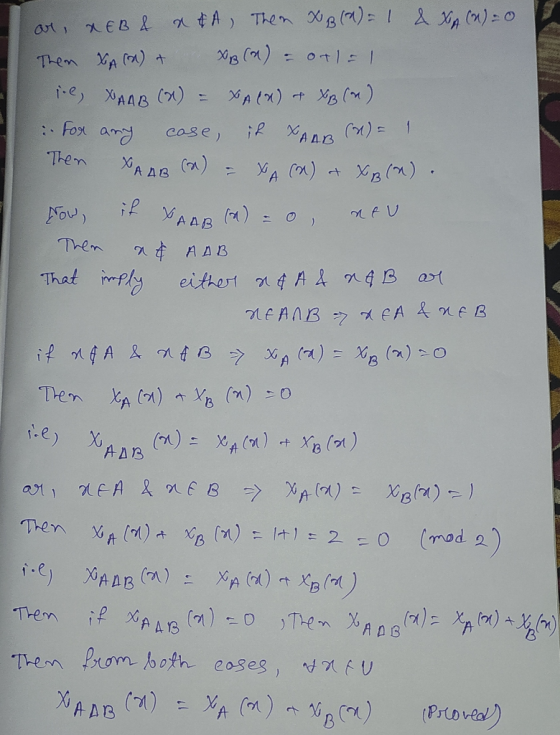 or, x∈B & x∉A, Then χ_B(x) = 1 & χ_A(x) = 0
Then χ_A(x) + χ_B(x) = 0+1 = 1
i.e, χ_{AΔB}(x) = χ_A(x) + χ_B(x)
∴ For any case, if χ_{AΔB}(x) = 1
Then χ_{AΔB}(x) = χ_A(x) + χ_B(x).
Now, if χ_{AΔB}(x) = 0, x∈U
Then x∉ AΔB
That imply either x∉A & x∉B or
x∈A∩B ⇒ x∈A & x∈B
if x∉A & x∉B ⇒ χ_A(x) = χ_B(x) = 0
Then χ_A(x) + χ_B(x) = 0
i.e, χ_{AΔB}(x) = χ_A(x) + χ_B(x)
or, x∈A & x∈B ⇒ χ_A(x) = χ_B(x) = 1
Then χ_A(x) + χ_B(x) = 1+1 = 2 = 0 (mod 2)
i.e, χ_{AΔB}(x) = χ_A(x) + χ_B(x)
Then if χ_{AΔB}(x) = 0, Then χ_{AΔB}(x) = χ_A(x) + χ_B(x)
Then from both cases, ∀x∈U
χ_{AΔB}(x) = χ_A(x) + χ_B(x) (Proved)